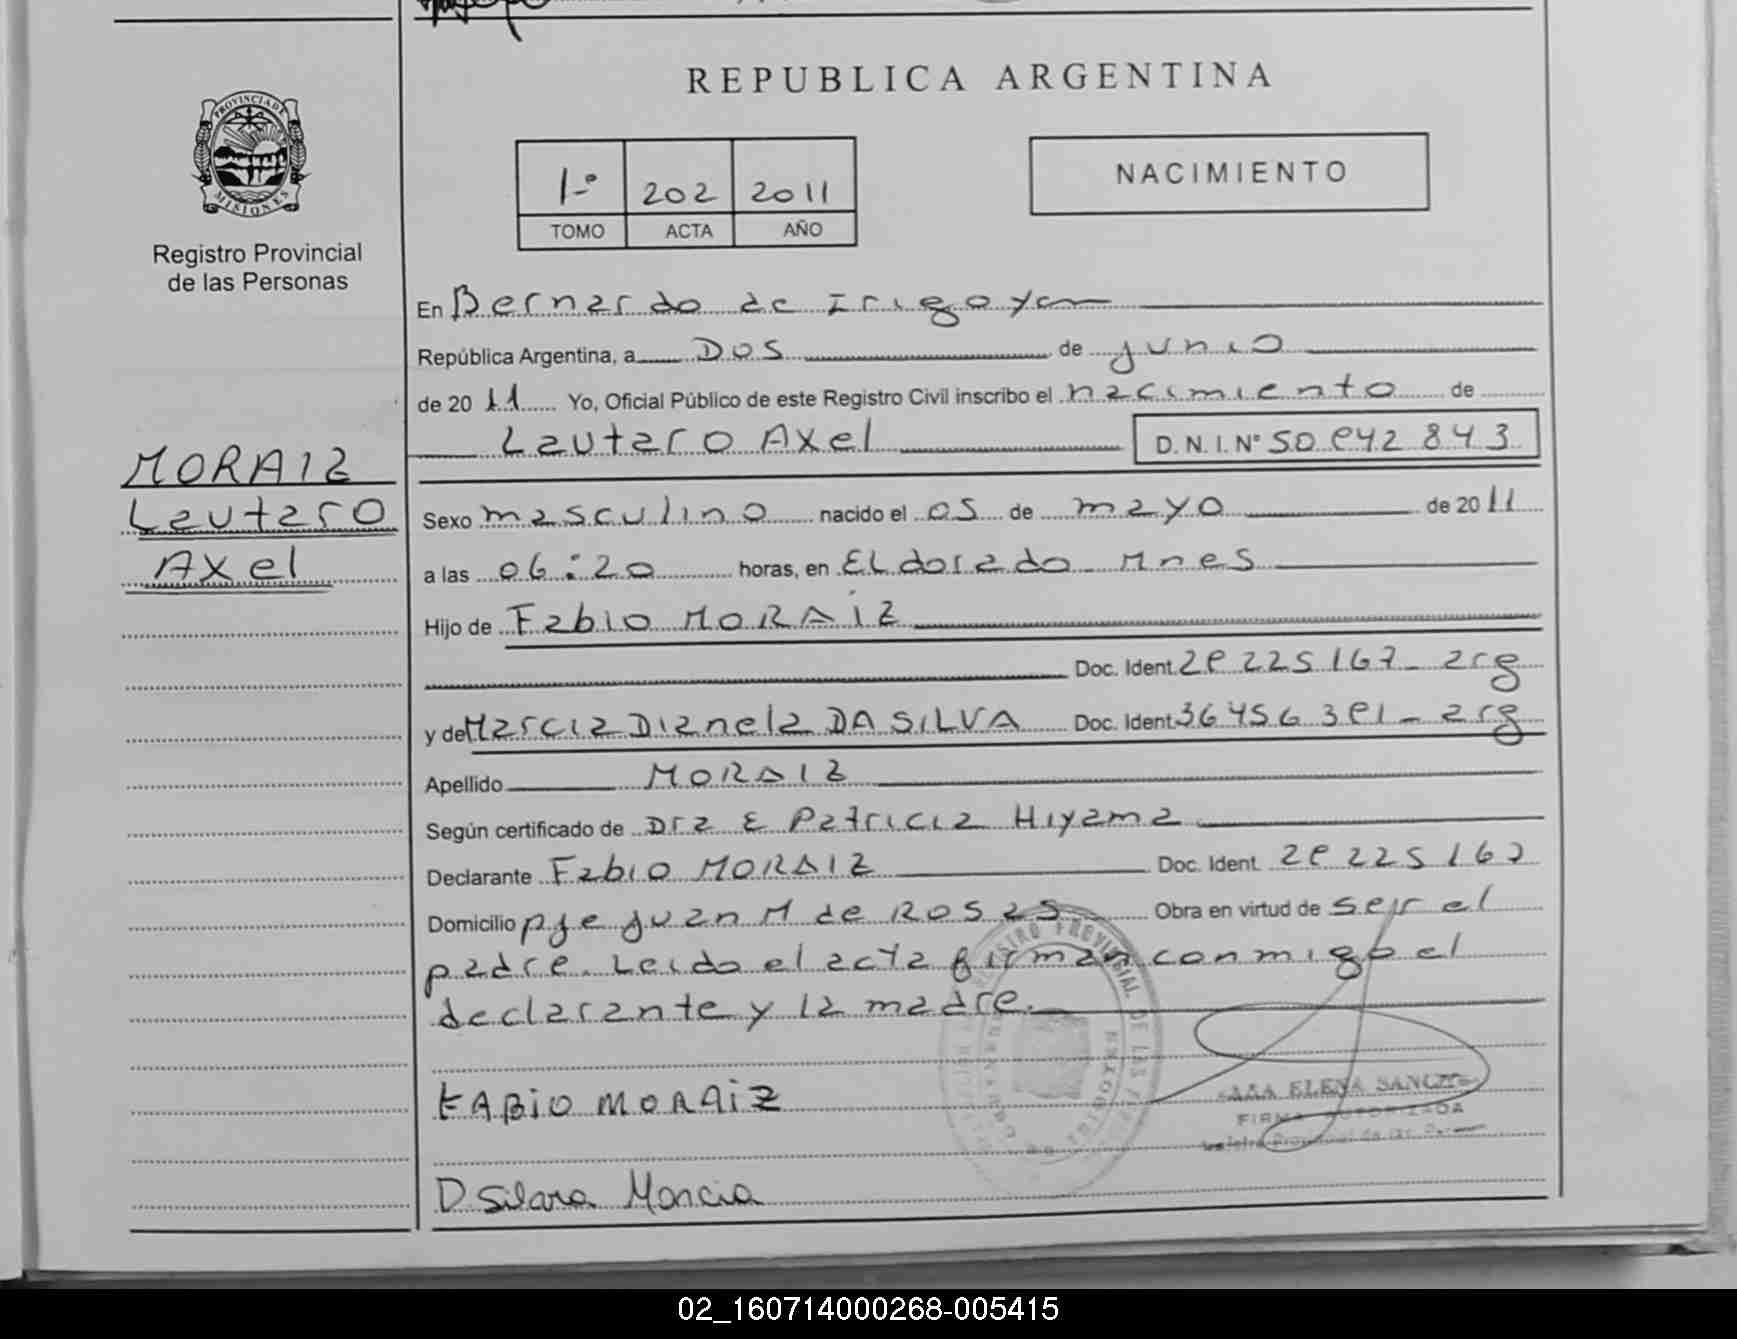 REPUBLICA ARGENTINA
PROVINCIA DE
MISIONES
Registro Provincial
de las Personas
1-º 202 2011
TOMO ACTA AÑO
NACIMIENTO
En Bernardo de Irigoyen
República Argentina, a Dos de junio
de 20 11 Yo, Oficial Público de este Registro Civil inscribo el nacimiento de
Lautaro Axel D.N.I. Nº 50 942 843
MORAIZ
Lautaro
Axel
Sexo masculino nacido el 05 de mayo de 2011
a las 06:20 horas, en Eldorado Mnes
Hijo de Fabio MORAIZ
Doc. Ident. 29 225 167 - arg
y de Marcia Dianela DA SILVA Doc. Ident. 36 456 391 - arg
Apellido MORAIZ
Según certificado de Dra E Patricia Hiyama
Declarante Fabio MORAIZ Doc. Ident. 29 225 167
Domicilio pje Juan M de Rosas Obra en virtud de ser el
padre. Leida el acta firman conmigo el
declarante y la madre.
REGISTRO PROVINCIAL DE LAS
ELENA
FIRMA AUTORIZADA
FABIO MORAIZ
D Silara Marcia
02_160714000268-005415